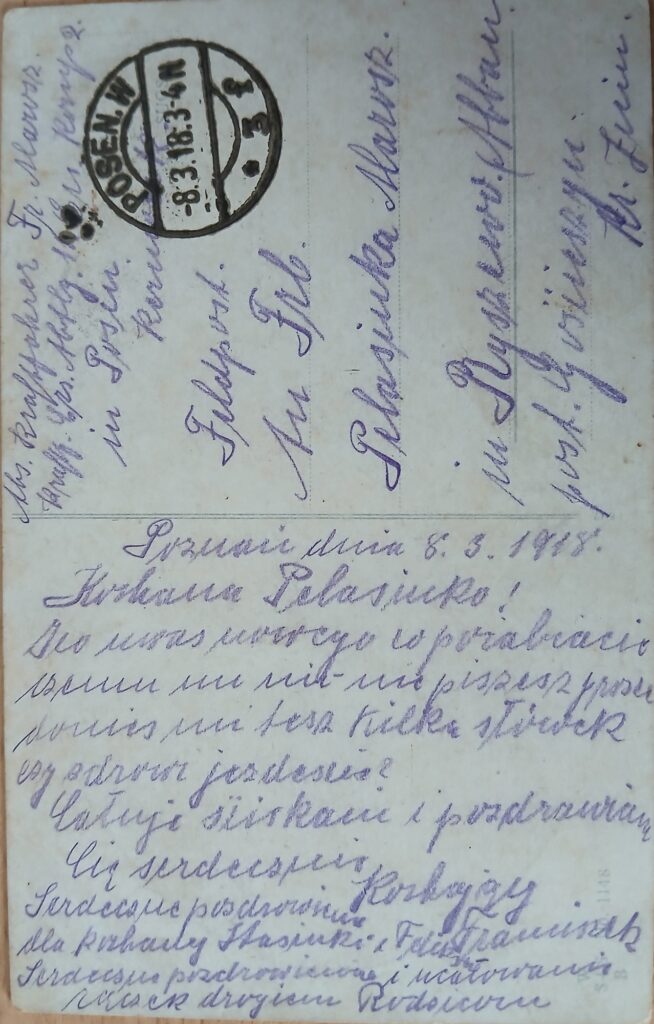 Abs. Kraftfahrer Fr. Marosz.
Kraftf. Ers. Abtlg. 1 Komp 2.
in Posen.
POSEN. W
-8.3.18.3-4N
* 3 f
Feldpost.
An Frl.
Pelasinka Marosz.
in Ryszewo. Abbau.
post.
Kr. Znin.
Poznań dnia 8. 3. 1918.
Kochana Pelasinko!
Co uwas nowego co porabiacie
czemu mi nic nie piszesz prosze
donies mi tesz kilka słówek
czy zdrowi jezdescie?
Całuje sciskam i pozdrawiam
Cię serdecznie
Kochający
Franciszek
Serdeczne pozdrowienie
dla kochany Stasiuki i
Serdeczne pozdrowienie i ucałowanie
rączek drogiem Rodzicom